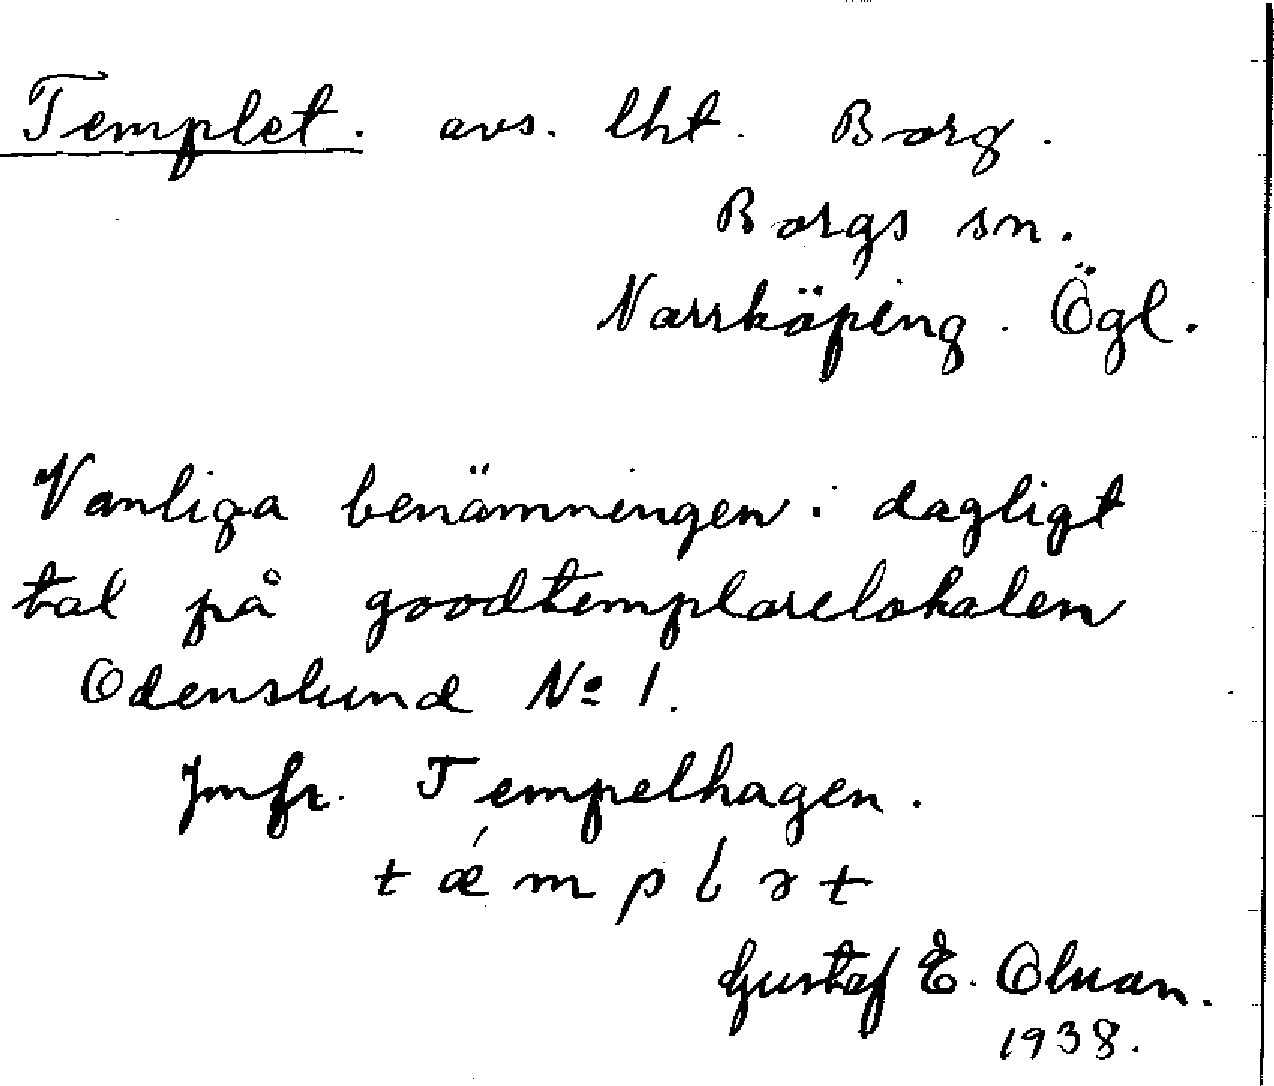 Templet. avs. lht. Borg.
Borgs sn.
Norrköping. Ögl.
Vanliga benämningen i dagligt
tal på goodtemplarelokalen
Odenslund No 1.
Jmfr. Tempelhagen.
tǽmplət
Gustaf E. Olsson.
1938.